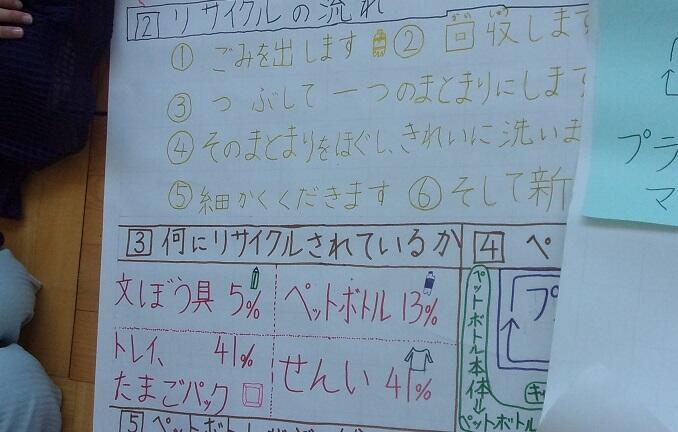 2 リサイクルの流れ
① ごみを出します ② 回収します
がい しゅう
③ つぶして一つのまとまりにします
④ そのまとまりをほぐし、きれいに洗いま
⑤ 細かくくだきます ⑥ そして新
3 何にリサイクルされているか
文ぼう具 5%
ペットボトル 13%
トレイ、たまごパック 41%
せんい 41%
4 ペ
プ
ペットボトル本体
キ
ペットボトル
5
プラ
マ